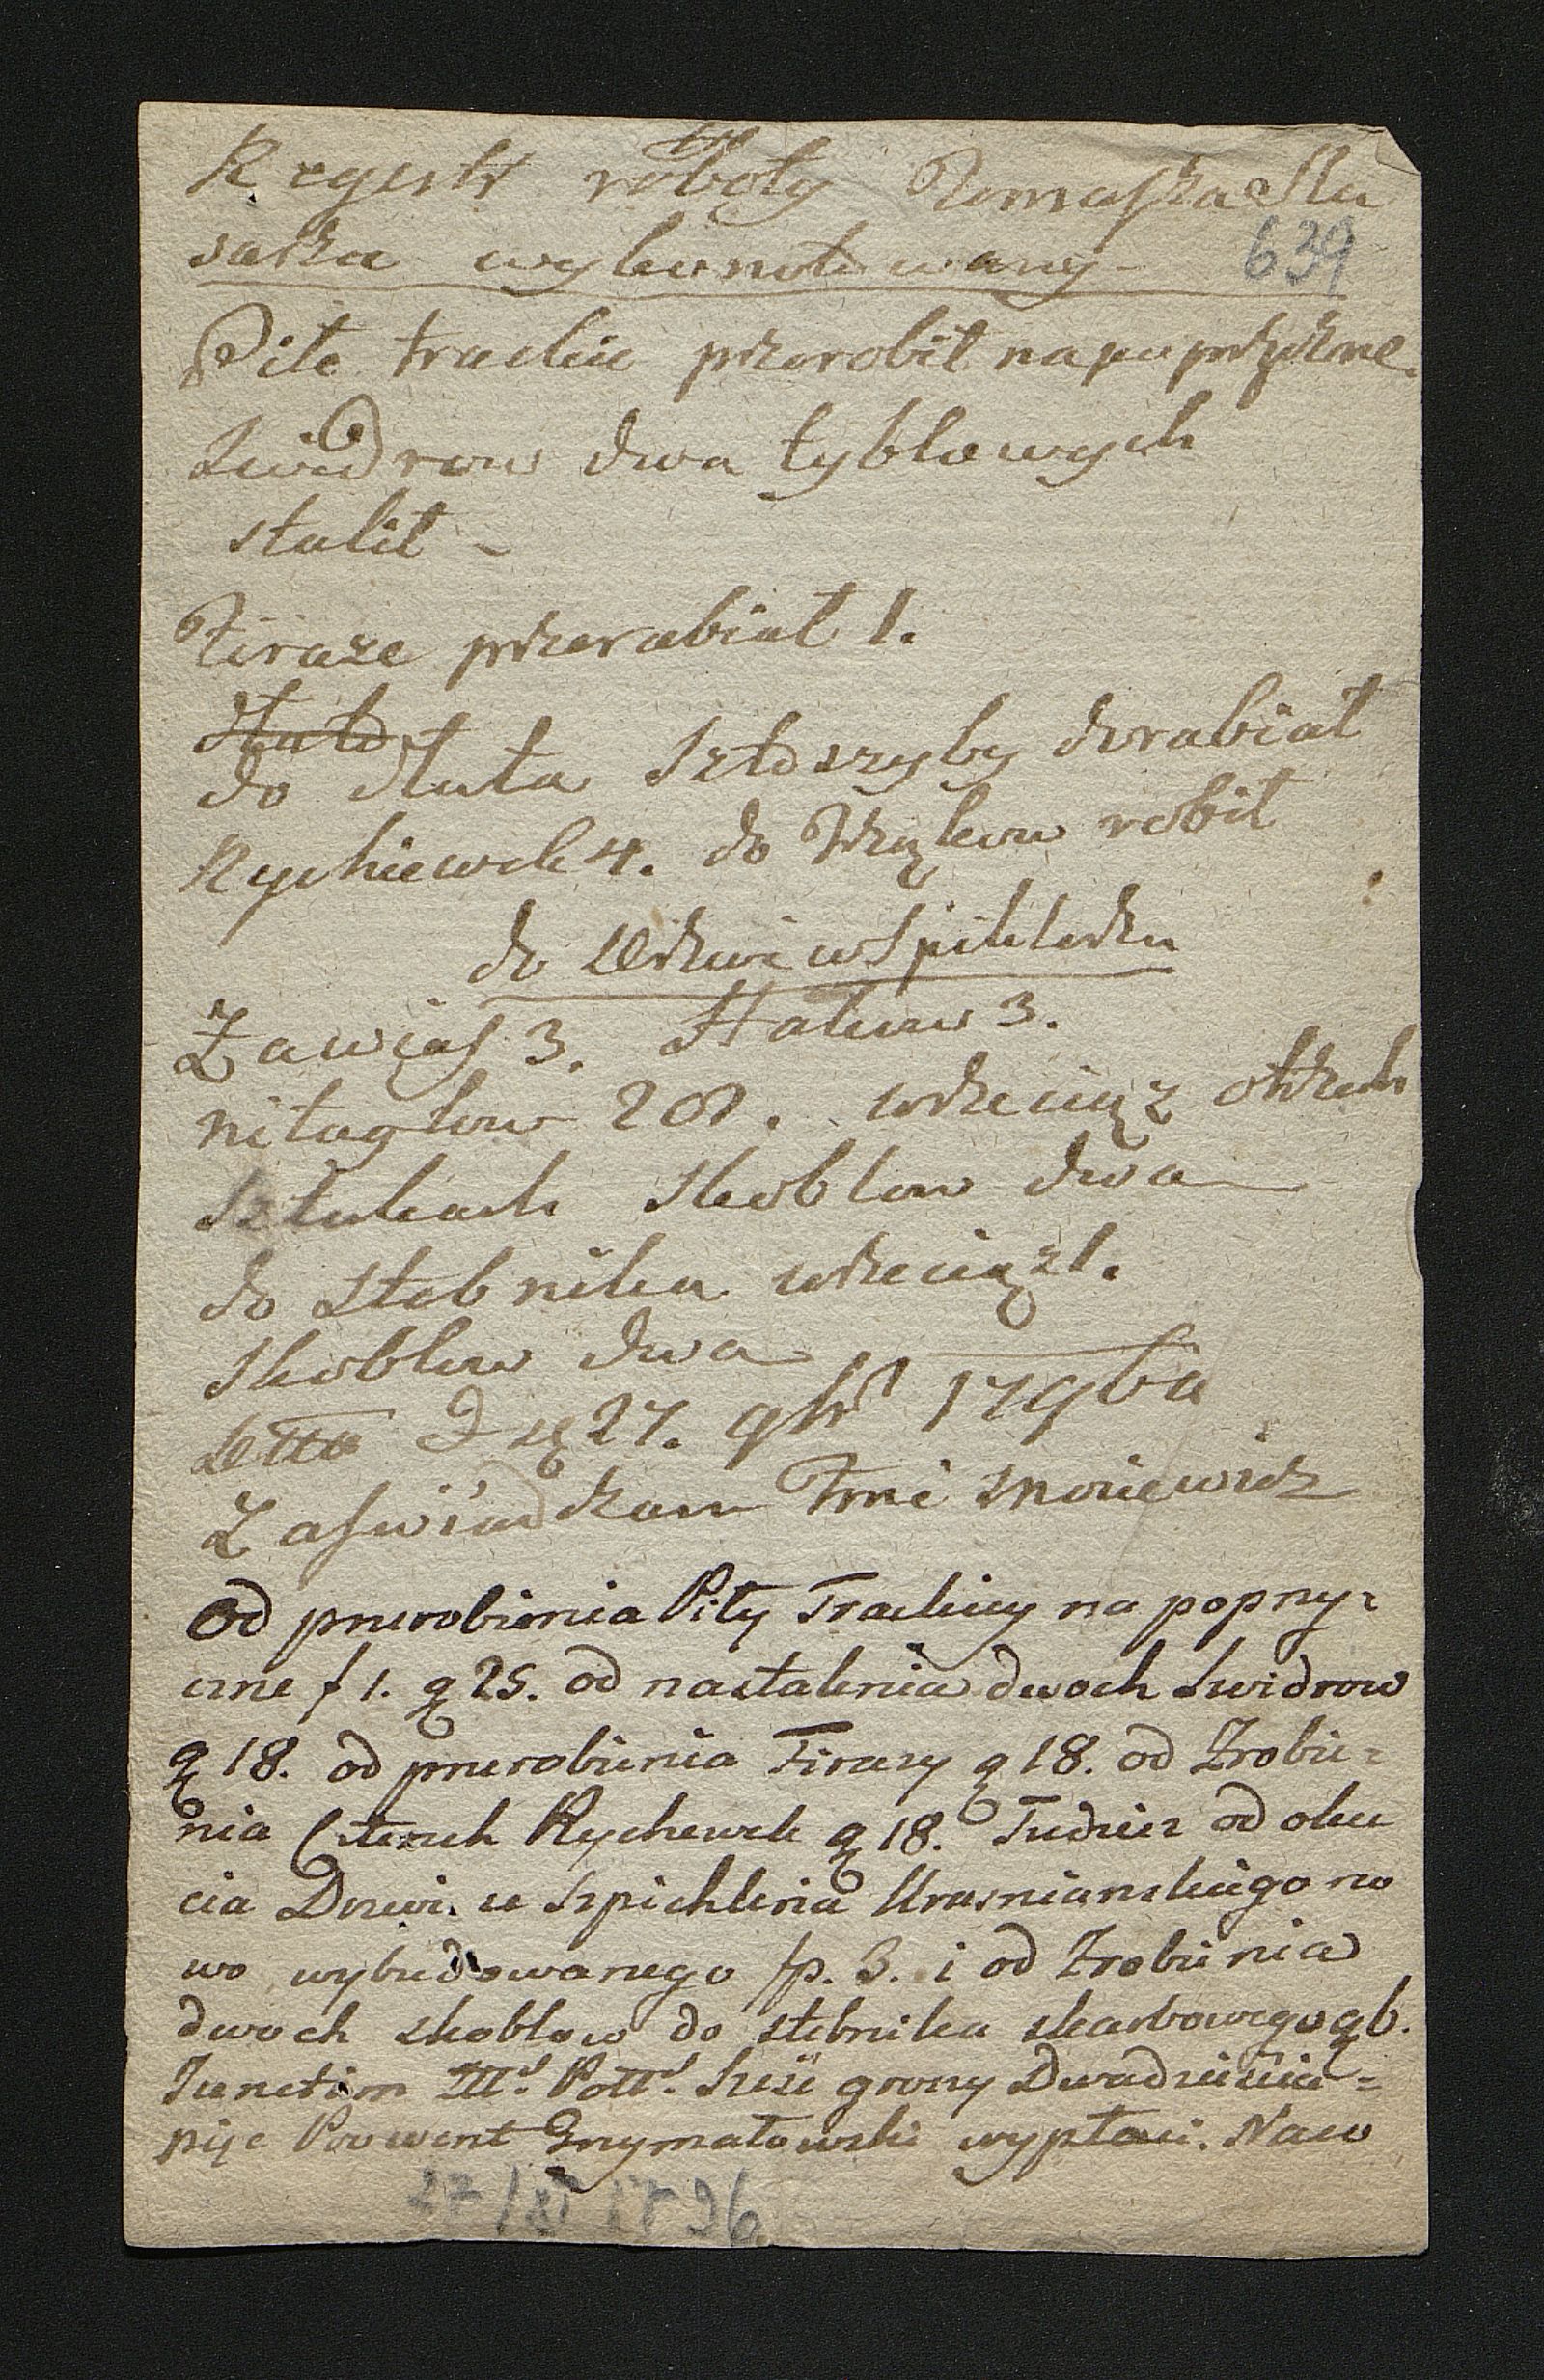 Regestr roboty Tomaszka Slu
sarka wykonotowany -
639
Piłe tracką przerobił na poprzeczne.
Swidrow dwa tyblowych
stalił -
Tiraze przerabiał 1.
do dłuta Sztoszyby dorabiał
Rychiewek 4. do robił
do Drzwi w Spiklerzu
Zawias 3. Hakow 3.
nitagłow 20. wrzeciąz o trzech
Sztukach Skoblow dwa
do Stebnika wrzeciąz 1.
Skoblow dwa
Dtto D 27. 9br 1796
Zaswiadczam
Od przerobienia Piły Trackiey na poprzy=
czne f 1. g 25. od nastalenia dwoch Swidrow
g 18. od przerobienia Tirazy g 18. od Zrobie=
nia Czterech Rychewek g 18. Tudziez od oku
cia Drzwi u Szpichlerza Krasnianskiego no
wo wybudowanego fp. 3. i od Zrobienia
dwoch skoblow do stebnika skarbowego g 6.
Junctim Ttł. Połł. Szesc groszy Dwadziescia=
pięc Prowent Grzymałowski wypłaci. Naco
27/XI 1796